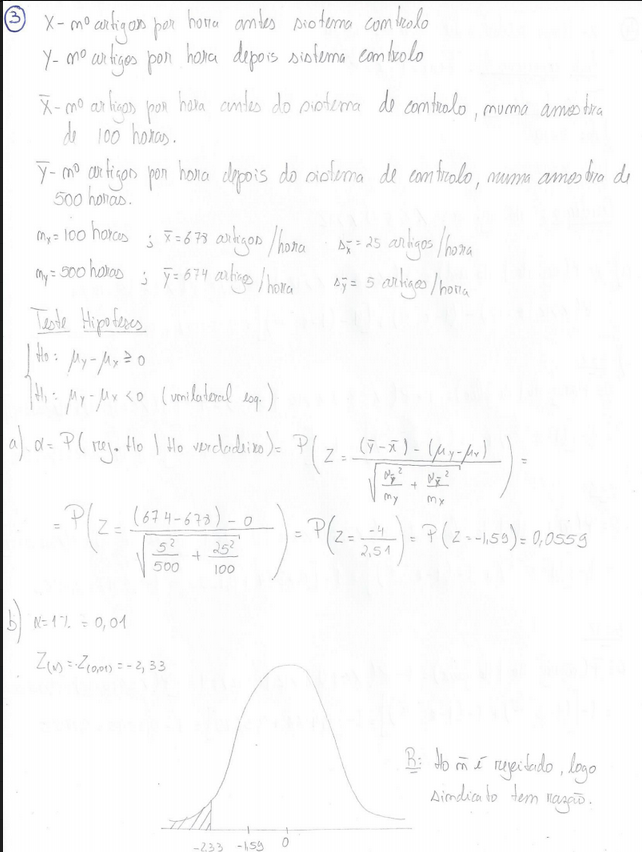 ③ X - nº artigos por hora antes sistema controlo
Y - nº artigos por hora depois sistema controlo
X̄ - nº artigos por hora antes do sistema de controlo, numa amostra
de 100 horas.
Ȳ - nº artigos por hora depois do sistema de controlo, numa amostra de
500 horas.
nx = 100 horas ; x̄ = 678 artigos/hora sx̄ = 25 artigos/hora
ny = 500 horas ; ȳ = 674 artigos/hora sȳ = 5 artigos/hora
Teste Hipóteses
H0: μy - μx ≥ 0
H1: μy - μx < 0 (unilateral esq.)
a) α = P(rej. H0 | H0 verdadeiro) = P(Z = ((ȳ - x̄) - (μy - μx)) / √(sȳ²/ny + sx̄²/nx)) =
= P(Z = ((674 - 678) - 0) / √(5²/500 + 25²/100)) = P(Z = -4/2,51) = P(Z = -1,59) = 0,0559
b) α = 1% = 0,01
Z(α) = -Z(0,01) = -2,33
R: H0 ñ é rejeitado, logo
sindicato tem razão.
-2,33 -1,59 0